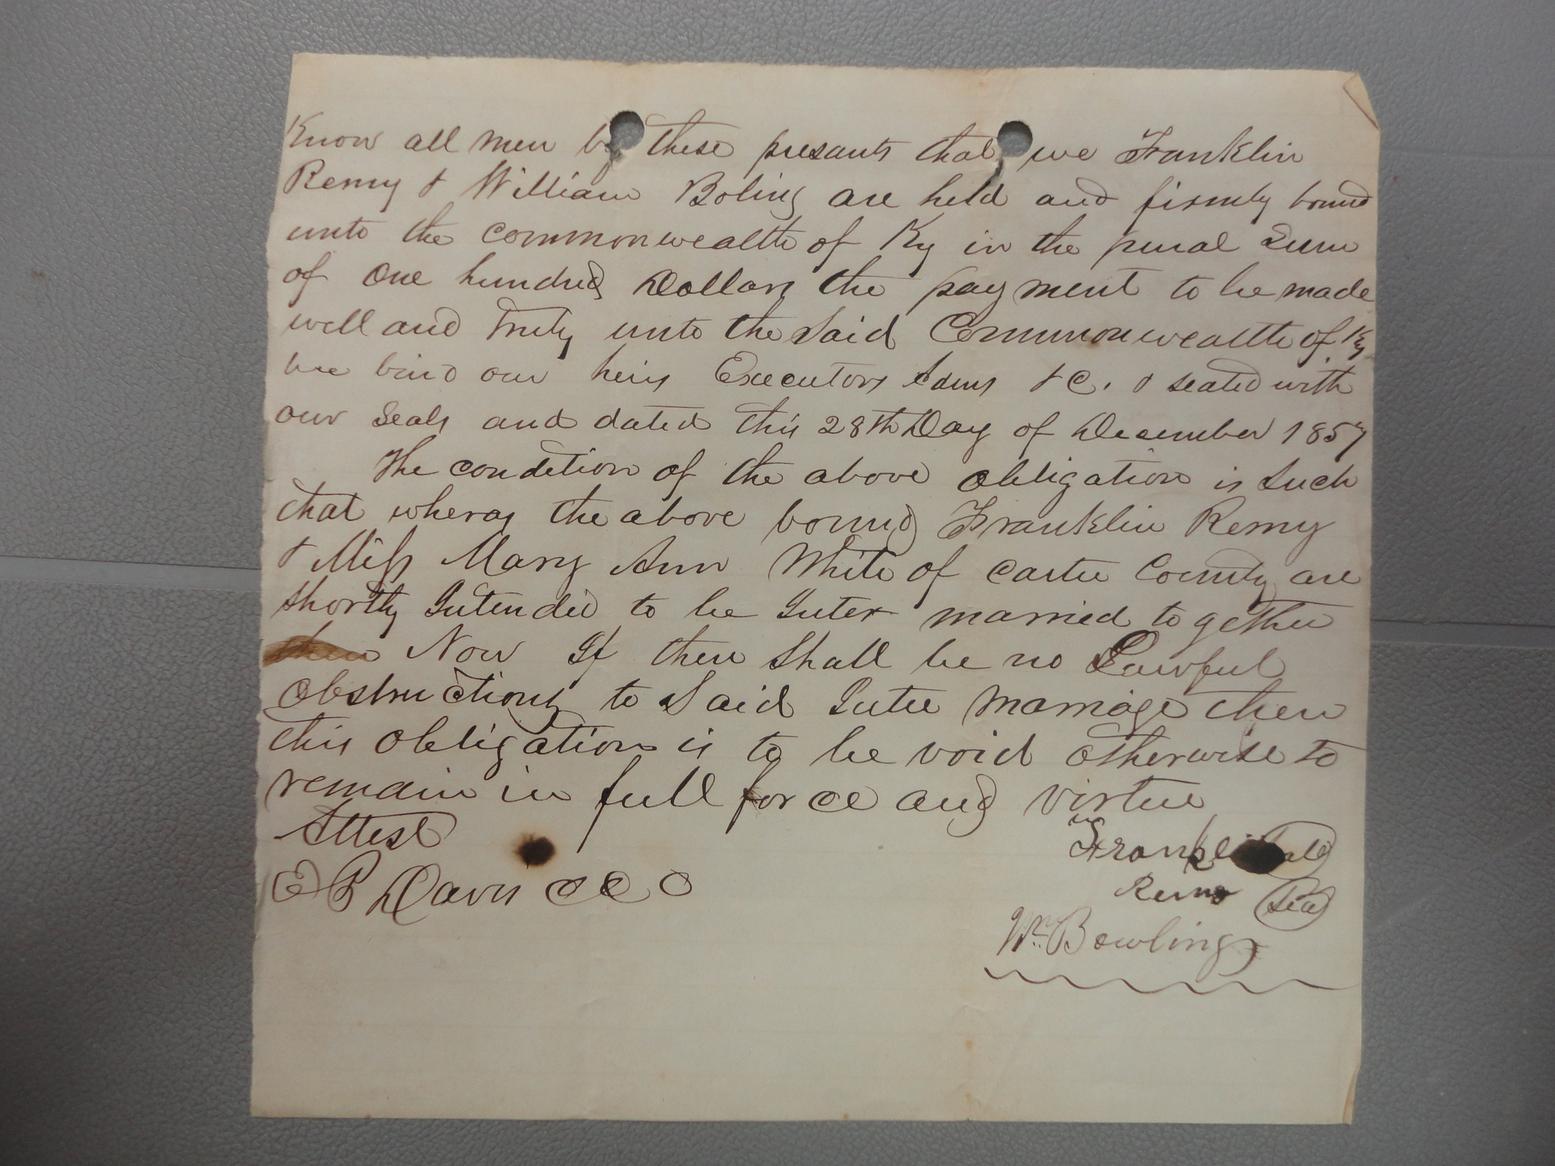 Know all men by these presants that we Franklin
Remy & William Boling are held and firmly bound
unto the commonwealth of Ky in the penal Sum
of One hundred Dollars the payment to be made
well and Truly unto the Said Commonwealth of Ky
we bind our heirs Executors Adms &C. & sealed with
our Seals and dated this 28th Day of December 1857
The condition of the above obligation is Such
that wheras the above bound Franklin Remy
& Miss Mary Ann White of Carter County are
Shortly Intended to be Inter married together
then Now If there Shall be no Lawful
obstructions to Said Inter marriage then
this obligation is to be void otherwise to
remain in full force and virtue
Attest
E B Davis CCC
Remy Seal
Wm Bowling